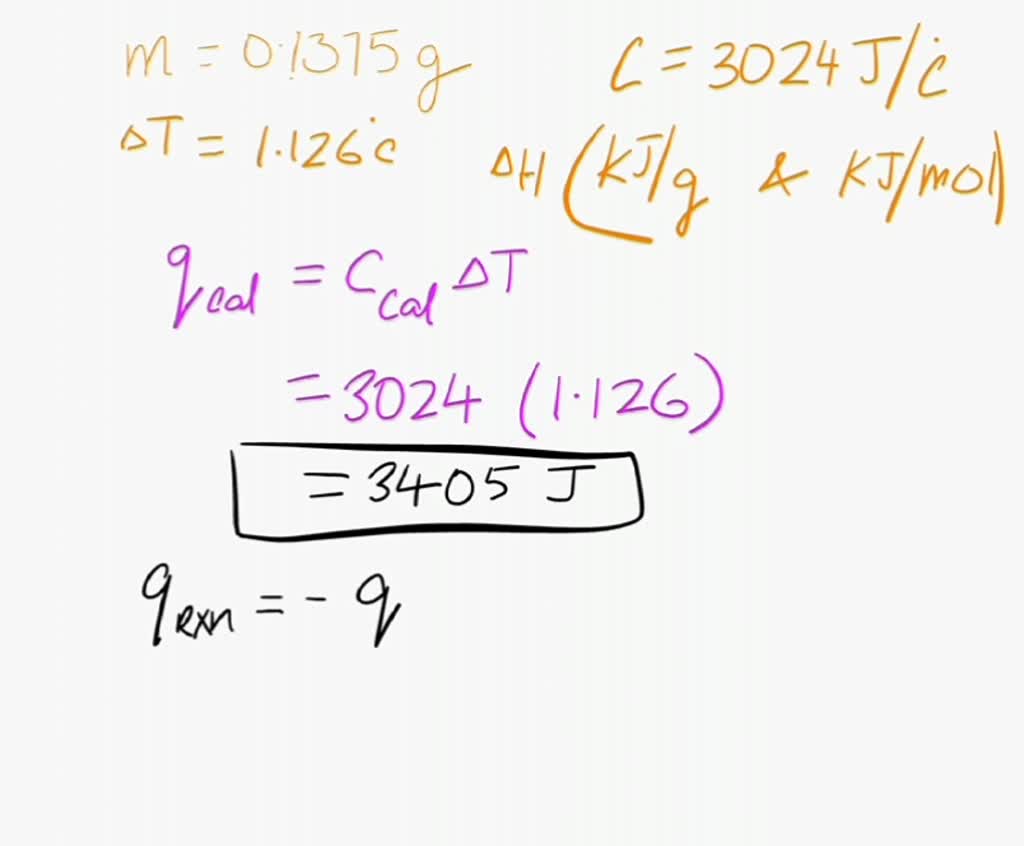 m = 0.1375 g
C = 3024 J/°c
ΔT = 1.126°c
ΔH (kJ/g & KJ/mol)
qcal = Ccal ΔT
= 3024 (1.126)
= 3405 J
qrxn = - q